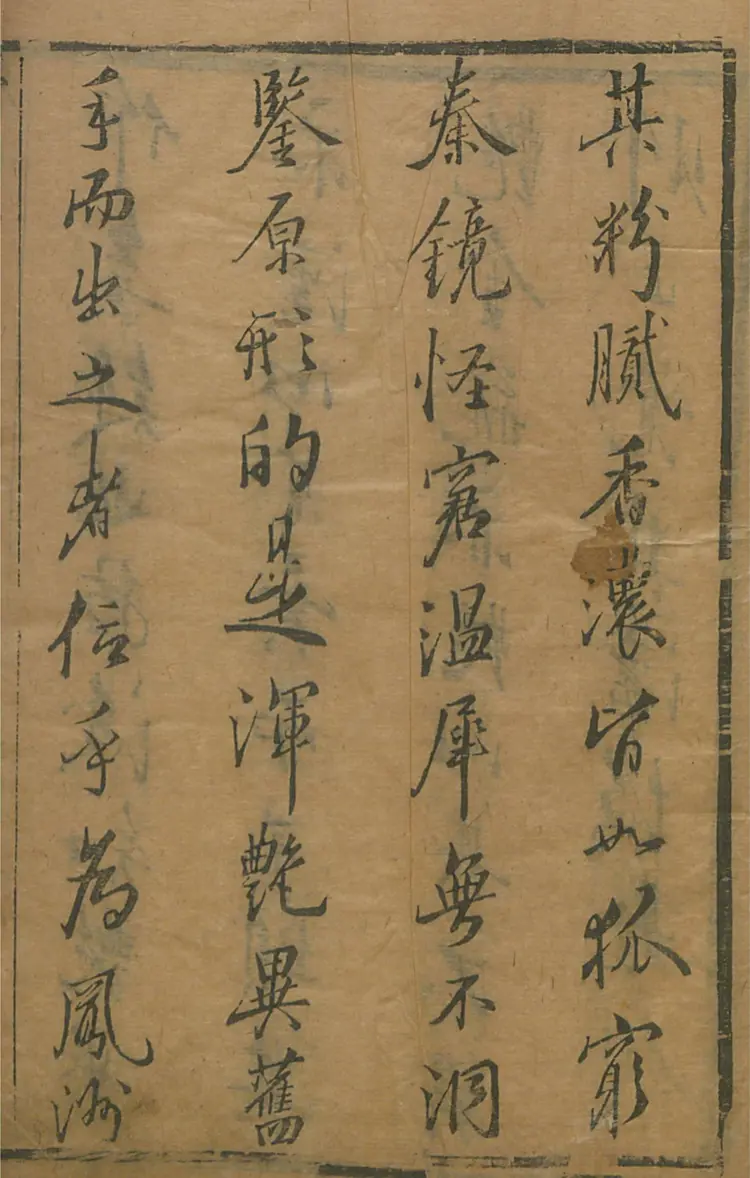 其粉膩香濃皆如狐窮
秦鏡怪窘溫犀無不洞
鑒原形的是渾艷異舊
手而出之者信乎為鳳洲